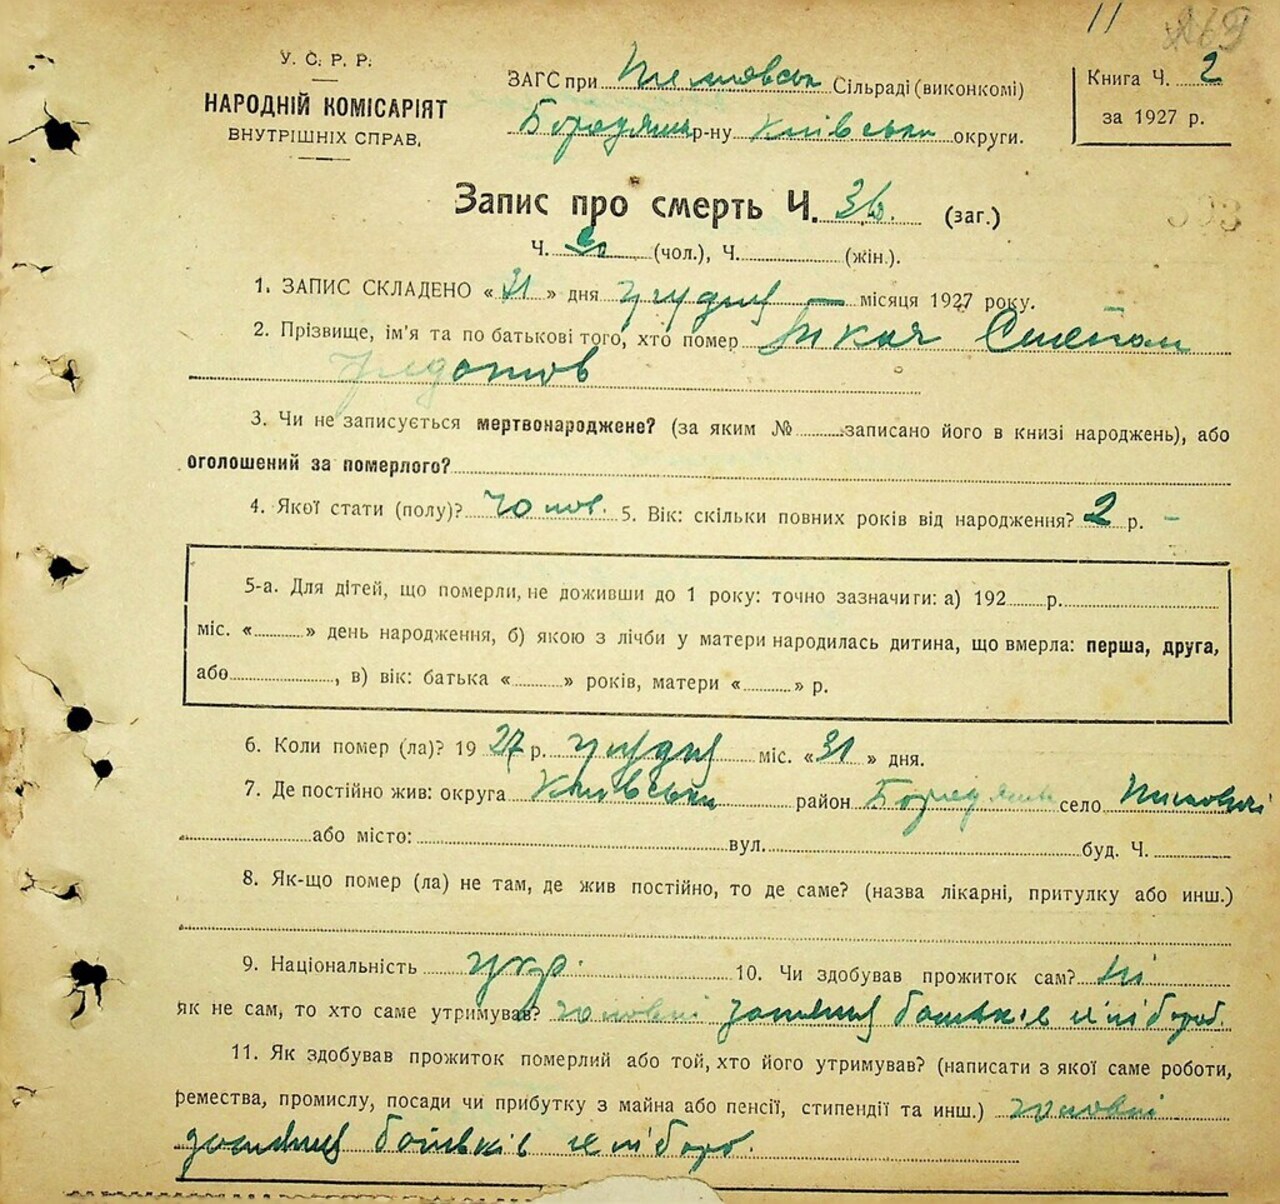 11
У. С. Р. Р.
НАРОДНІЙ КОМІСАРІЯТ
ВНУТРІШНІХ СПРАВ,
ЗАГС при Сільраді (виконкомі)
р-ну Київськ округи.
Книга Ч. 2
за 1927 р.
Запис про смерть Ч. 36 (заг.)
Ч. (чол.), Ч. (жін.).
1. ЗАПИС СКЛАДЕНО « 31 » дня грудня — місяця 1927 року.
2. Прізвище, ім'я та по батькові того, хто помер Ткач Степан
Федотов
3. Чи не записується мертвонароджене? (за яким № записано його в книзі народжень), або
оголошений за померлого?
4. Якої стати (полу)? чолов. 5. Вік: скільки повних років від народження? 2 р. –
5-а. Для дітей, що померли, не доживши до 1 року: точно зазначити: а) 192 р.
міс. « » день народження, б) якою з лічби у матери народилась дитина, що вмерла: перша, друга,
або , в) вік: батька « » років, матери « » р.
6. Коли помер (ла)? 19 27 р. грудня міс. « 31 » дня.
7. Де постійно жив: округа Київська район Бородянськ село
або місто: вул. буд. Ч.
8. Як-що помер (ла) не там, де жив постійно, то де саме? (назва лікарні, притулку або инш.)
9. Національність укр. 10. Чи здобував прожиток сам? ні
як не сам, то хто саме утримував? головні заняття батьків хлібороб.
11. Як здобував прожиток померлий або той, хто його утримував? (написати з якої саме роботи,
ремества, промислу, посади чи прибутку з майна або пенсії, стипендії та инш.) головні
заняття батьків хлібороб.